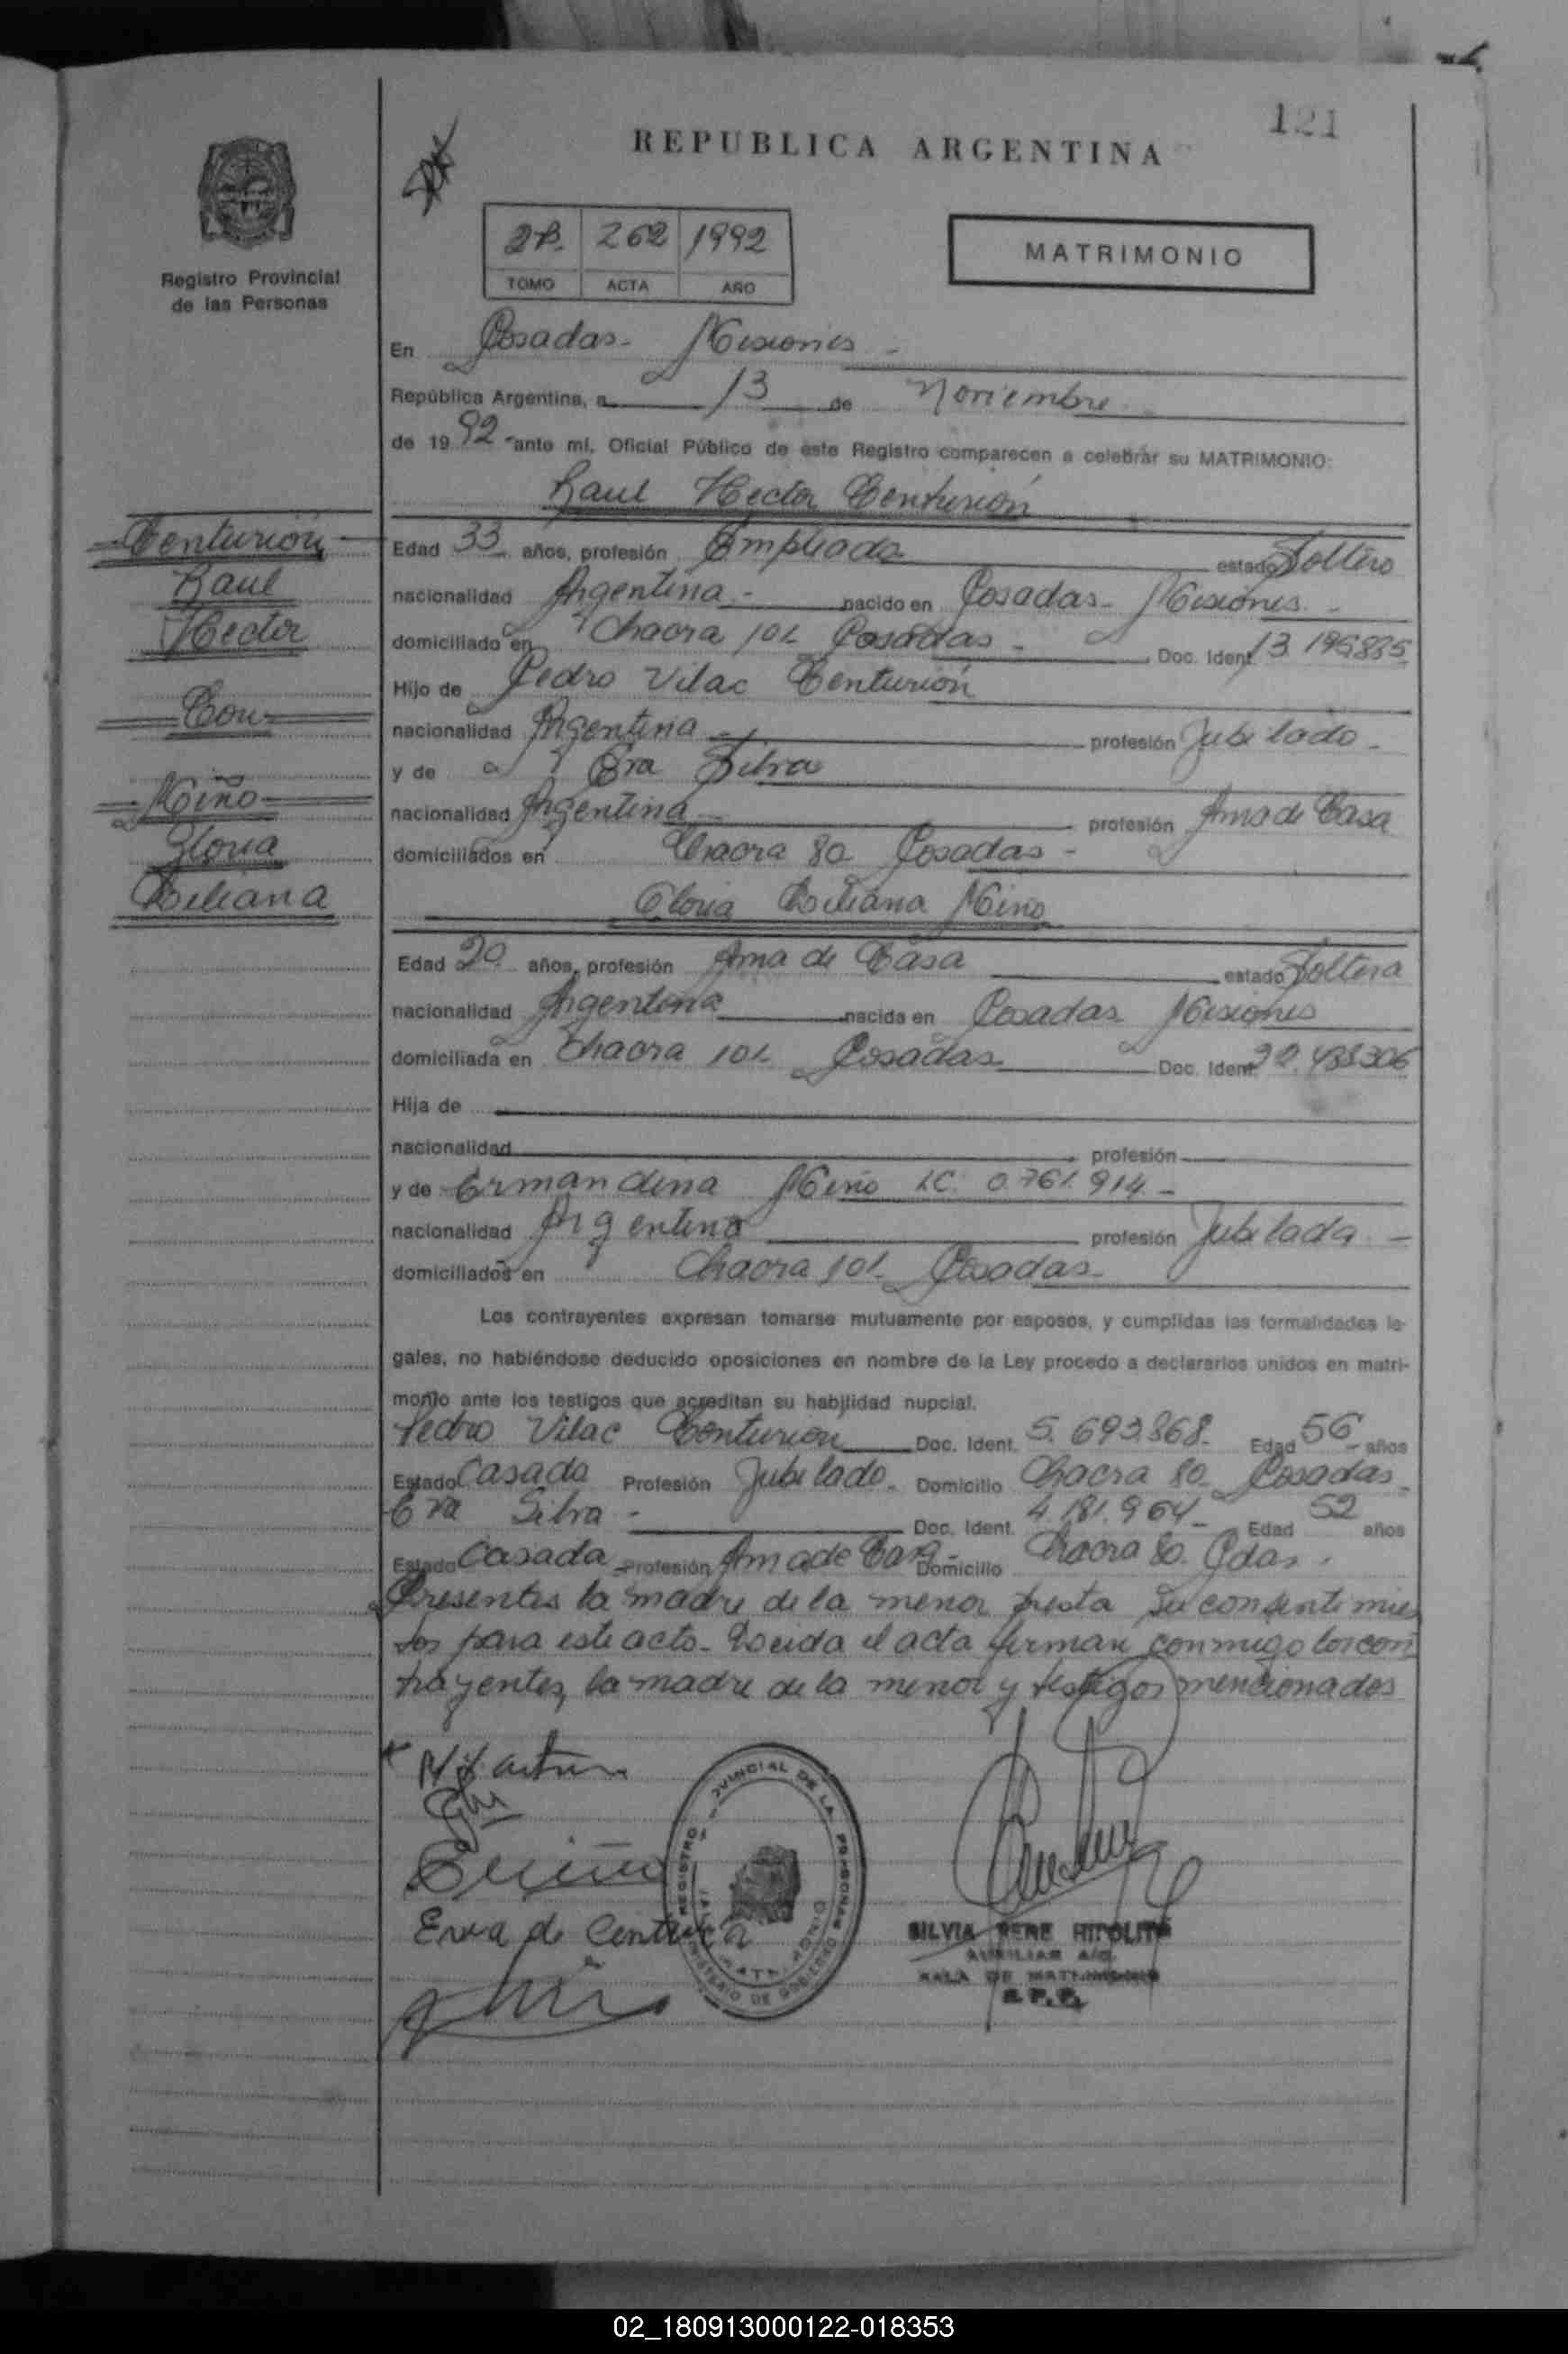 121
REPUBLICA ARGENTINA
Registro Provincial
de las Personas
2B. 262 1992
TOMO ACTA AÑO
MATRIMONIO
En Posadas - Misiones -
República Argentina, a 13 de Noviembre
de 1992 - ante mí, Oficial Público de este Registro comparecen a celebrar su MATRIMONIO:
Raul Hector Centurión
Centurión
Raul
Hector
Con
Miño
Gloria
Liliana
Edad 33 años, profesión Empleado estado Soltero
nacionalidad Argentina - nacido en Posadas - Misiones -
domiciliado en Chacra 101 Posadas - Doc. Ident. 13.195885
Hijo de Pedro Vilac Centurión
nacionalidad Argentina - profesión Jubilado -
y de Eva Silva
nacionalidad Argentina - profesión Ama de Casa
domiciliados en Chacra 80 Posadas -
Gloria Liliana Miño
Edad 20 años, profesión Ama de Casa estado Soltera
nacionalidad Argentina nacida en Posadas Misiones
domiciliada en Chacra 101 Posadas Doc. Ident. 22.438306
Hija de
nacionalidad profesión
y de Ermandina Miño LC. 0.761.914 -
nacionalidad Argentina profesión Jubilada -
domiciliados en Chacra 101 - Posadas -
Los contrayentes expresan tomarse mutuamente por esposos, y cumplidas las formalidades le-
gales, no habiéndose deducido oposiciones en nombre de la Ley procedo a declararlos unidos en matri-
monio ante los testigos que acreditan su habilidad nupcial.
Pedro Vilac Centurion Doc. Ident. 5.693.868 - Edad 56 - años
Estado Casado Profesión Jubilado - Domicilio Chacra 80 - Posadas -
Eva Silva - Doc. Ident. 4.181.964 - Edad 52 años
Estado Casada Profesión Ama de Casa - Domicilio Chacra 80. Pdas.
Presentes la madre de la menor presta su consentimien
tos para este acto - Leida el acta firman conmigo los con
trayentes, la madre de la menor y testigos mencionados
Eva de Centurion
REGISTRO PROVINCIAL DE LAS PERSONAS
MINISTERIO DE GOBIERNO
MATRIMONIO
SILVIA RENE HIPOLITO
AUXILIAR A/C
SALA DE MATRIMONIO
R.P.P.
02_180913000122-018353